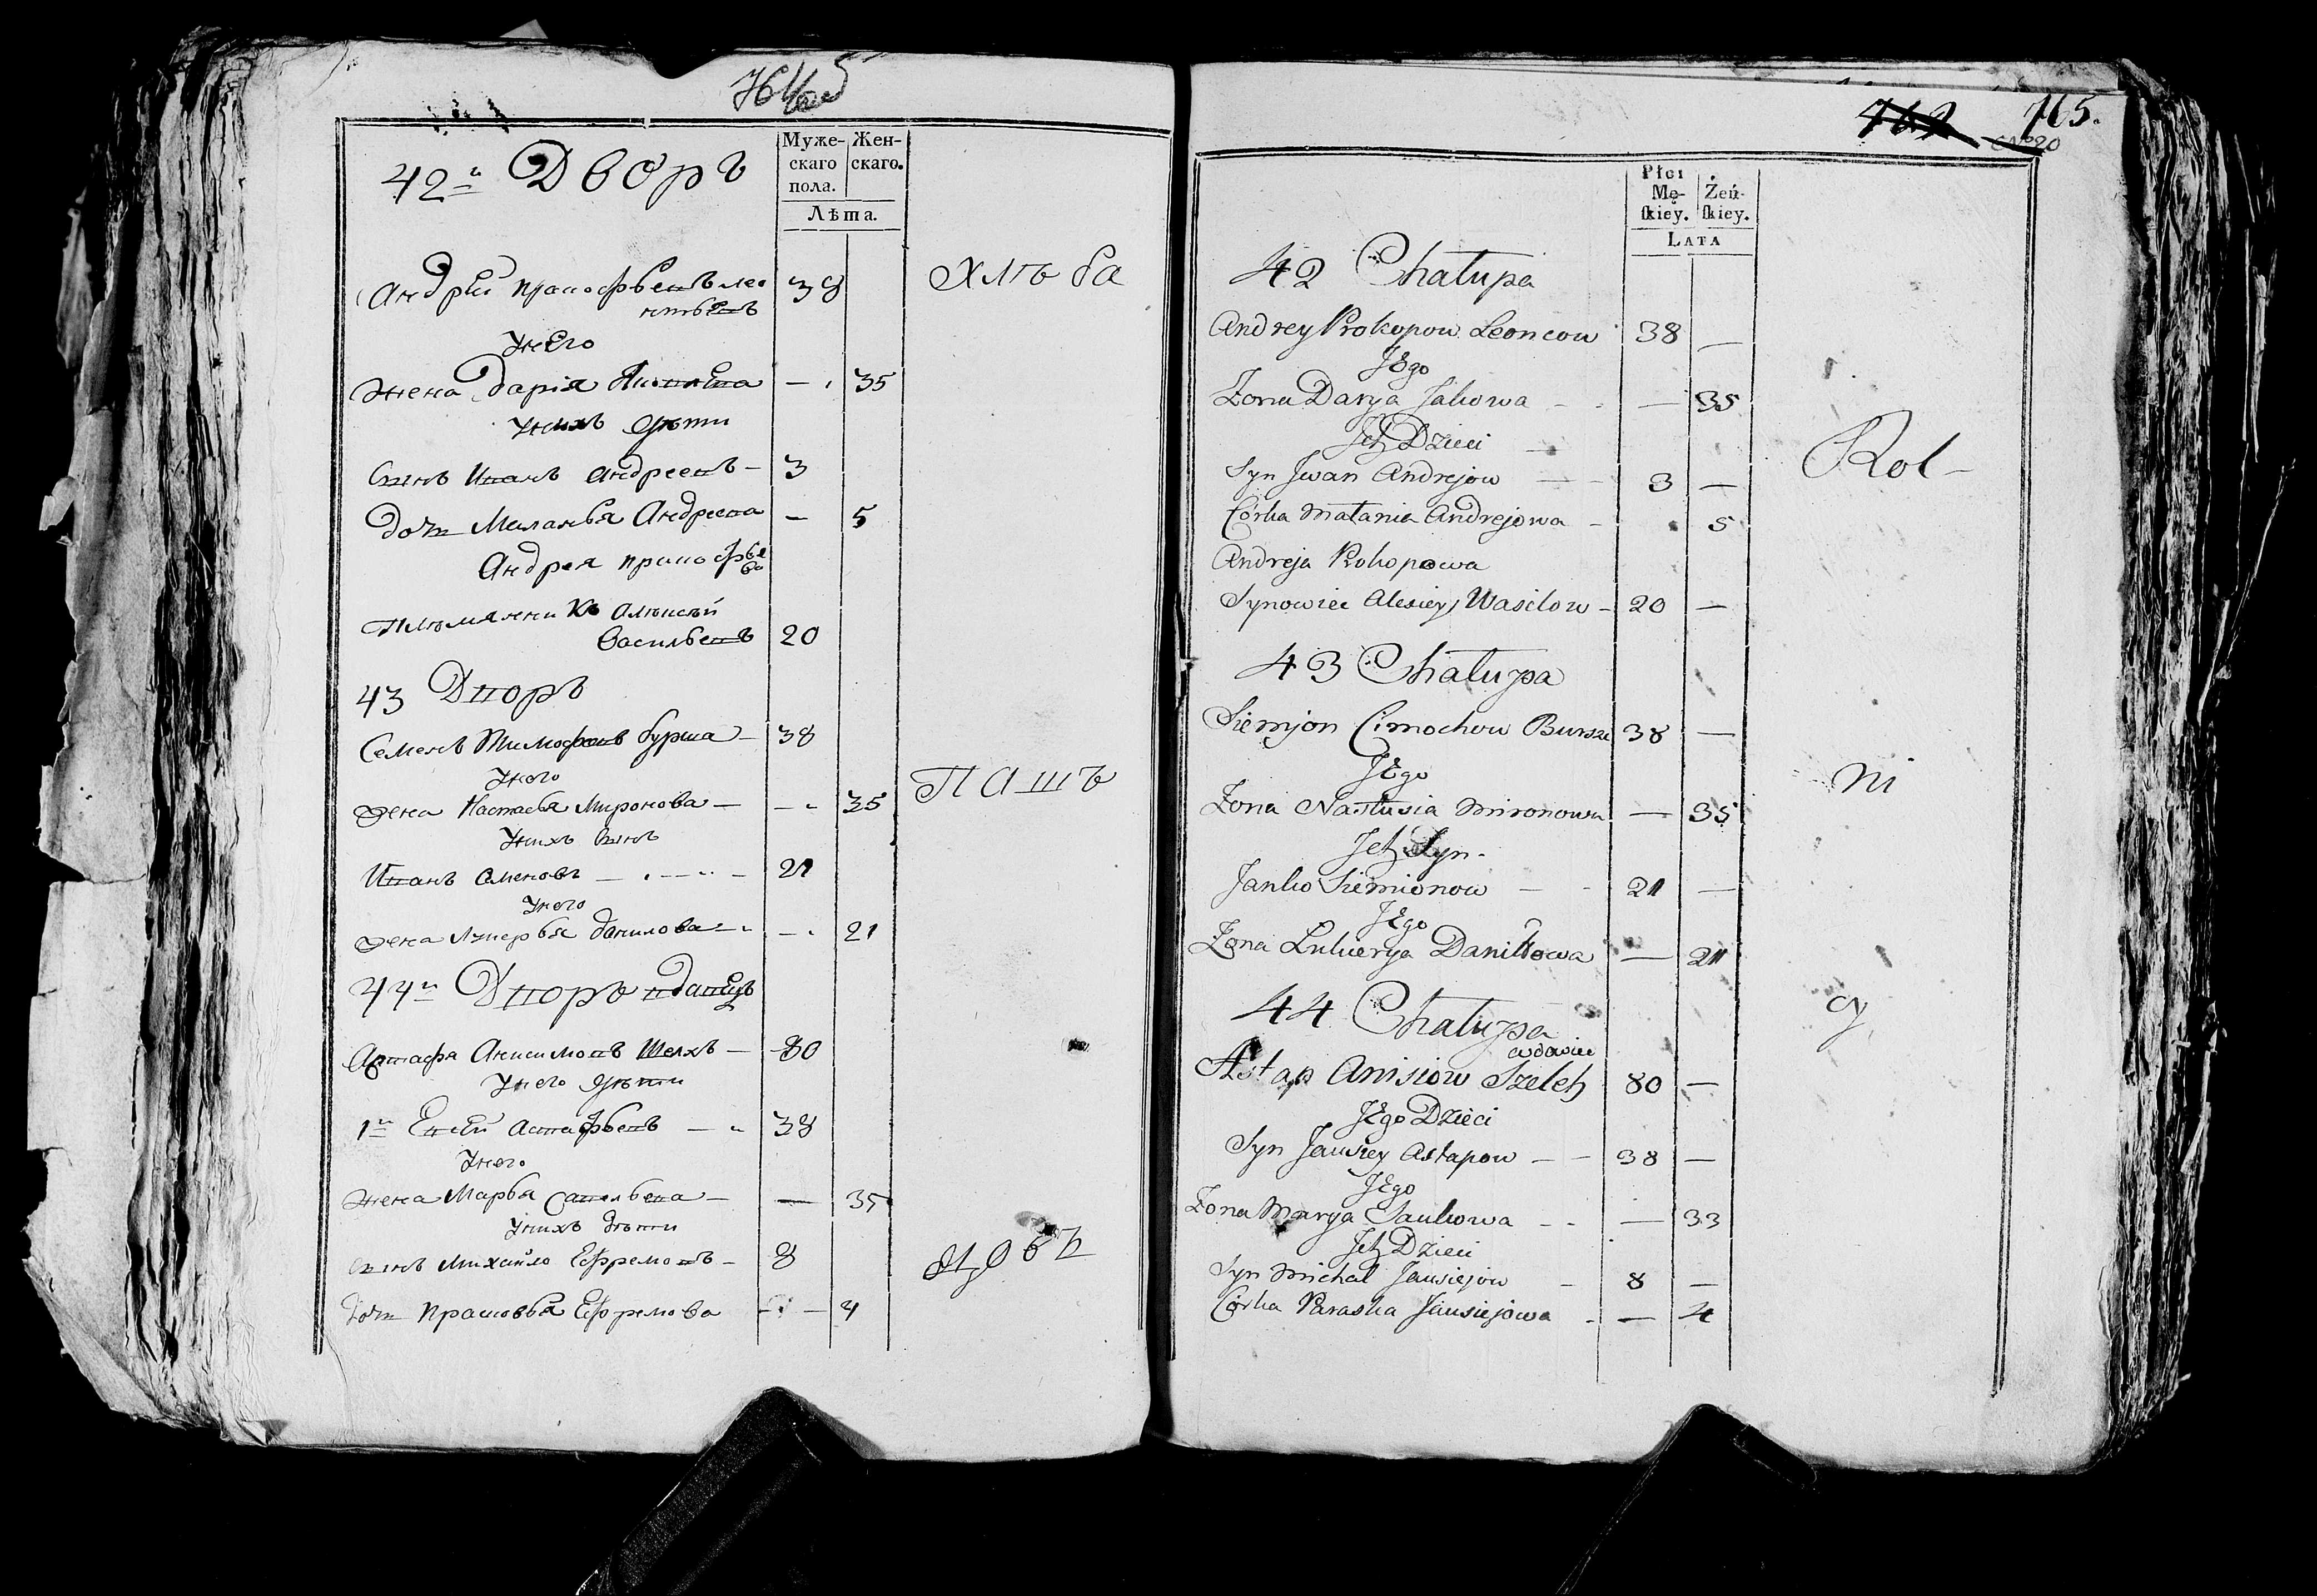 42й Дворъ
Муже-
скаго
пола.
Жен-
скаго.
Лѣта.
Андрей Прокофьевъ Лео
нтьевъ 38
У него
Жена Дарiя 35
У нихъ дѣти
Сынъ Иванъ Андреевъ 3
Дочь Маланья Андреева 5
Андрея Прокофье
ва
Племянникъ Алексѣй
Васильевъ 20
43 Дворъ
Семенъ Тимофеевъ Бурша 38
У него
Жена Настасья Миронова 35
У нихъ сынъ
Иванъ Семеновъ 21
У него
Жена Лукерья Данилова 21
44й Дворъ вдовецъ
Астафя Анисимовъ Шелхъ 80
У него дѣти
1й Евсей Астафьевъ 38
У него
Жена Марья Савельева 35
У нихъ дѣти
Сынъ Михайло Ефремовъ 8
Дочь Прасковья Ефремова 4
Хлѣба
Пашъ
цовъ
765.
Płci
Mę-
ſkiey.
Żeń-
ſkiey.
Lata
42 Chałupa
Andrey Prokopow Leoncow 38 —
Jego
Żona Darya Jakowa — 35
Ich Dzieci
Syn Jwan Andrejow 3 —
Córka Małania Andrejowa - 5
Andreja Prokopowa
Synowiec Alexiey Wasilow - 20 —
43 Chałupa
Siemjon Cimochow Bursza 38 —
Jego
Żona Nastusia Mironowa — 35
Ich Syn
Janko Siemionow 21 —
Jego
Żona Lukierya Daniłowa — 21
44 Chałupa
wdowiec
Astap Anisiow Szelch 80 —
Jego Dzieci
Syn Jausiey Astapow 38 —
Jego
Żona Marya Saukowa — 33
Ich Dzieci
Syn Michał Jausiejow 8 —
Córka Paraska Jausiejowa — 4
Rol-
ni
cy